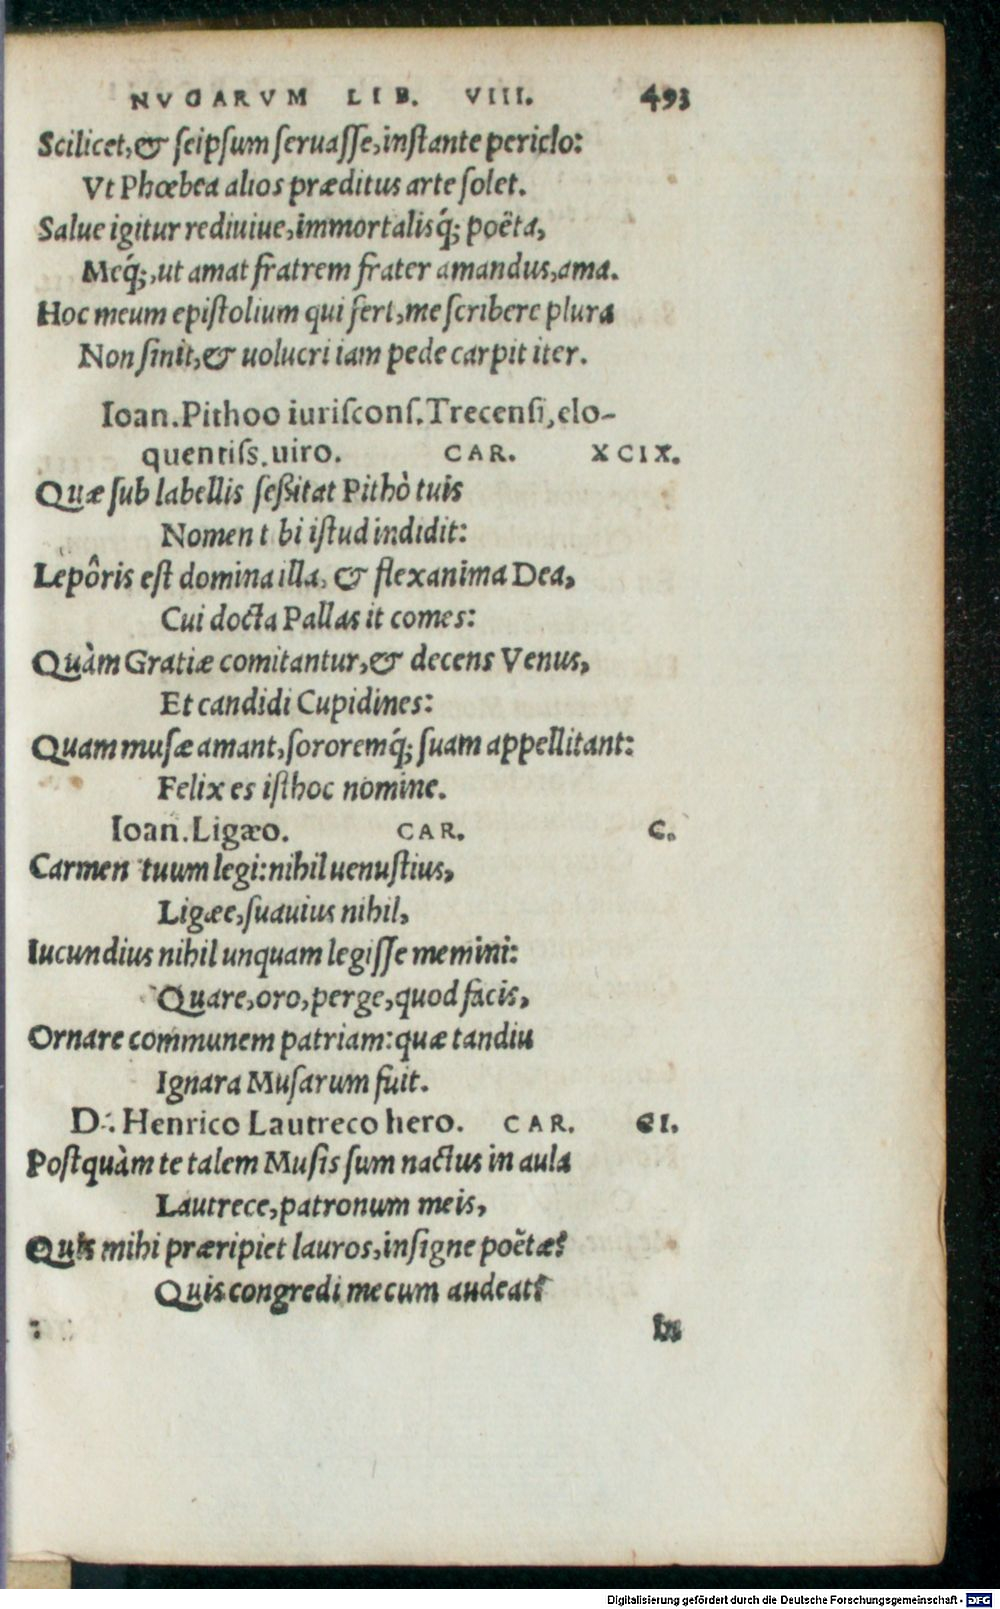 NVGARVM LIB. VIII. 493
Scilicet,& seipsum seruasse,instante periclo:
Vt Phœbea alios præditus arte solet.
Salue igitur rediuiue,immortalisq́; poëta,
Meq́;,ut amat fratrem frater amandus,ama.
Hoc meum epistolium qui fert,me scribere plura
Non sinit,& uolucri iam pede carpit iter.
Ioan.Pithoo iuriscons.Trecensi,elo-
quentiss.uiro. CAR. XCIX.
Quæ sub labellis seßitat Pithò tuis
Nomen t bi istud indidit:
Lepôris est domina illa, & flexanima Dea,
Cui docta Pallas it comes:
Quàm Gratiæ comitantur,& decens Venus,
Et candidi Cupidines:
Quam musæ amant,sororemq́; suam appellitant:
Felix es isthoc nomine.
Ioan.Ligæo. CAR. C.
Carmen tuum legi:nihil uenustius,
Ligæe,suauius nihil,
Iucundius nihil unquam legisse memini:
Quare,oro,perge,quod facis,
Ornare communem patriam:quæ tandiu
Ignara Musarum fuit.
D. Henrico Lautreco hero. CAR. CI.
Postquàm te talem Musis sum nactus in aula
Lautrece,patronum meis,
Quis mihi præripiet lauros,insigne poëtæ?
Quis congredi mecum audeat?
In
Digitalisierung gefördert durch die Deutsche Forschungsgemeinschaft - DFG